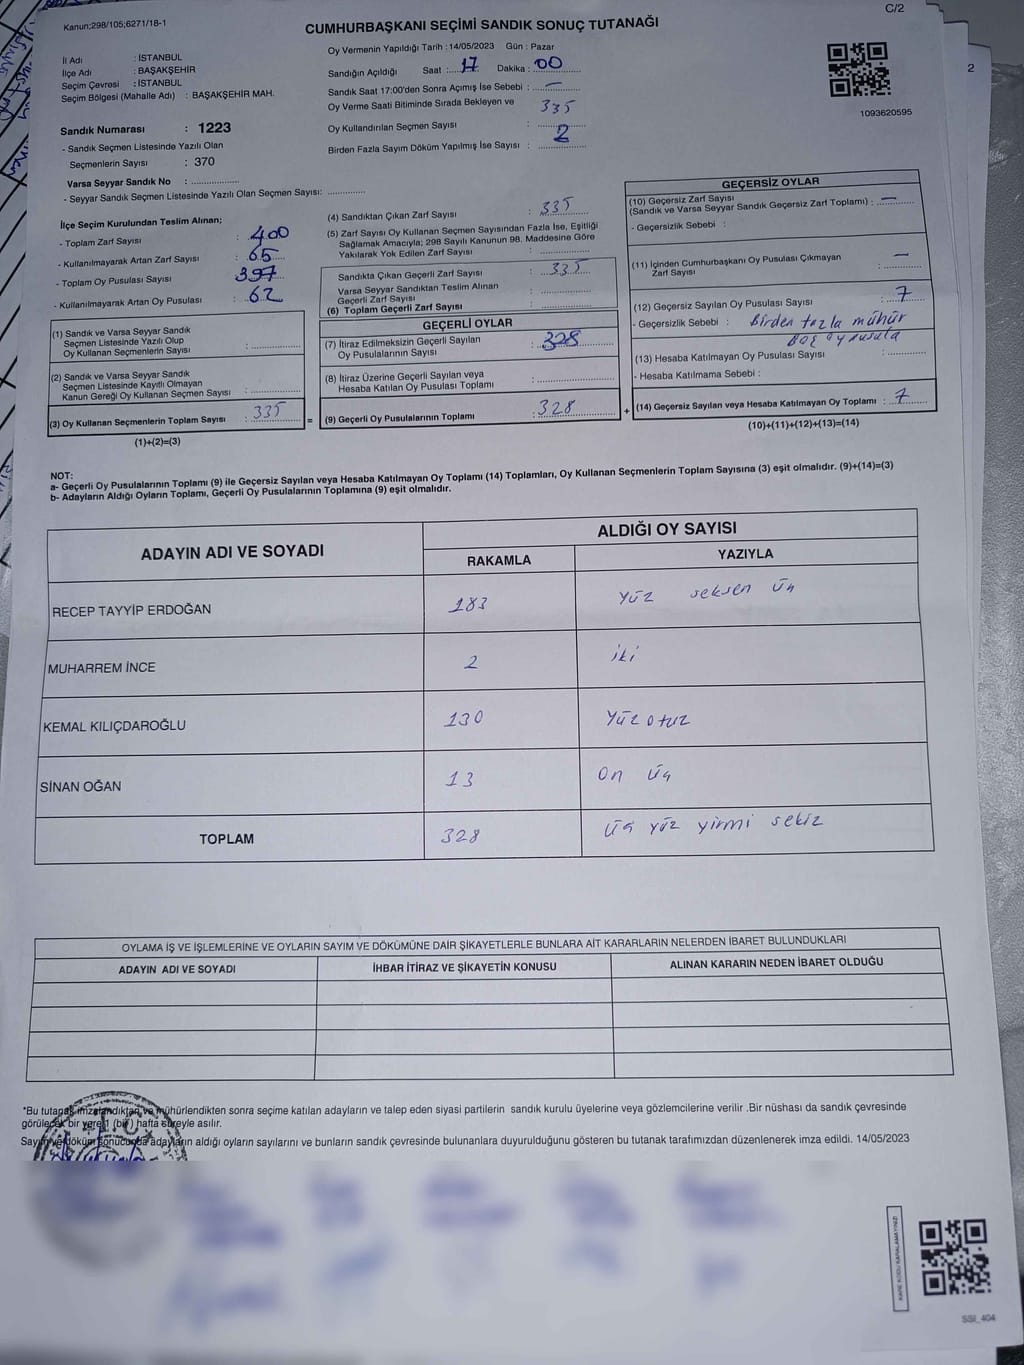 Kanun;298/105;6271/18-1
C/2
CUMHURBAŞKANI SEÇİMİ SANDIK SONUÇ TUTANAĞI
İl Adı : İSTANBUL
İlçe Adı : BAŞAKŞEHİR
Seçim Çevresi : İSTANBUL
Seçim Bölgesi (Mahalle Adı) : BAŞAKŞEHİR MAH.
Sandık Numarası : 1223
- Sandık Seçmen Listesinde Yazılı Olan
Seçmenlerin Sayısı : 370
Varsa Seyyar Sandık No : ..............
- Seyyar Sandık Seçmen Listesinde Yazılı Olan Seçmen Sayısı: ..............
Oy Vermenin Yapıldığı Tarih : 14/05/2023 Gün : Pazar
Sandığın Açıldığı Saat : 17 Dakika : 00
Sandık Saat 17:00'den Sonra Açımış İse Sebebi : —
Oy Verme Saati Bitiminde Sırada Bekleyen ve
Oy Kullandırılan Seçmen Sayısı : 335
Birden Fazla Sayım Döküm Yapılmış İse Sayısı : 2
1093620595
2
İlçe Seçim Kurulundan Teslim Alınan;
- Toplam Zarf Sayısı : 400
- Kullanılmayarak Artan Zarf Sayısı : 65
- Toplam Oy Pusulası Sayısı : 397
- Kullanılmayarak Artan Oy Pusulası : 62
(1) Sandık ve Varsa Seyyar Sandık
Seçmen Listesinde Yazılı Olup
Oy Kullanan Seçmenlerin Sayısı : ..............
(2) Sandık ve Varsa Seyyar Sandık
Seçmen Listesinde Kayıtlı Olmayan
Kanun Gereği Oy Kullanan Seçmen Sayısı : ..............
(3) Oy Kullanan Seçmenlerin Toplam Sayısı : 335 =
(1)+(2)=(3)
(4) Sandıktan Çıkan Zarf Sayısı : 335
(5) Zarf Sayısı Oy Kullanan Seçmen Sayısından Fazla İse, Eşitliği
Sağlamak Amacıyla; 298 Sayılı Kanunun 98. Maddesine Göre
Yakılarak Yok Edilen Zarf Sayısı : ..............
Sandıkta Çıkan Geçerli Zarf Sayısı : 335
Varsa Seyyar Sandıktan Teslim Alınan
Geçerli Zarf Sayısı : ..............
(6) Toplam Geçerli Zarf Sayısı : ..............
GEÇERLİ OYLAR
(7) İtiraz Edilmeksizin Geçerli Sayılan
Oy Pusulalarının Sayısı : 328
(8) İtiraz Üzerine Geçerli Sayılan veya
Hesaba Katılan Oy Pusulası Toplamı : ..............
(9) Geçerli Oy Pusulalarının Toplamı : 328 +
GEÇERSİZ OYLAR
(10) Geçersiz Zarf Sayısı
(Sandık ve Varsa Seyyar Sandık Geçersiz Zarf Toplamı) : —
- Geçersizlik Sebebi :
(11) İçinden Cumhurbaşkanı Oy Pusulası Çıkmayan
Zarf Sayısı : —
(12) Geçersiz Sayılan Oy Pusulası Sayısı : 7
- Geçersizlik Sebebi : Birden fazla mühür
Boş oy pusula
(13) Hesaba Katılmayan Oy Pusulası Sayısı : ..............
- Hesaba Katılmama Sebebi :
(14) Geçersiz Sayılan veya Hesaba Katılmayan Oy Toplamı : 7
(10)+(11)+(12)+(13)=(14)
NOT:
a- Geçerli Oy Pusulalarının Toplamı (9) ile Geçersiz Sayılan veya Hesaba Katılmayan Oy Toplamı (14) Toplamları, Oy Kullanan Seçmenlerin Toplam Sayısına (3) eşit olmalıdır. (9)+(14)=(3)
b- Adayların Aldığı Oyların Toplamı, Geçerli Oy Pusulalarının Toplamına (9) eşit olmalıdır.
ADAYIN ADI VE SOYADI
ALDIĞI OY SAYISI
RAKAMLA YAZIYLA
RECEP TAYYİP ERDOĞAN 183 Yüz seksen üç
MUHARREM İNCE 2 iki
KEMAL KILIÇDAROĞLU 130 Yüz otuz
SİNAN OĞAN 13 On üç
TOPLAM 328 Üç yüz yirmi sekiz
OYLAMA İŞ VE İŞLEMLERİNE VE OYLARIN SAYIM VE DÖKÜMÜNE DAİR ŞİKAYETLERLE BUNLARA AİT KARARLARIN NELERDEN İBARET BULUNDUKLARI
ADAYIN ADI VE SOYADI İHBAR İTİRAZ VE ŞİKAYETİN KONUSU ALINAN KARARIN NEDEN İBARET OLDUĞU
*Bu tutanak imzalandıktan ve mühürlendikten sonra seçime katılan adayların ve talep eden siyasi partilerin sandık kurulu üyelerine veya gözlemcilerine verilir .Bir nüshası da sandık çevresinde
görülecek bir yere 1 (bir) hafta süreyle asılır.
Sayım ve döküm sonucunda adayların aldığı oyların sayılarını ve bunların sandık çevresinde bulunanlara duyurulduğunu gösteren bu tutanak tarafımızdan düzenlenerek imza edildi. 14/05/2023
T.C.
KARE KODU KARALAMAYINIZ!
SSI_404